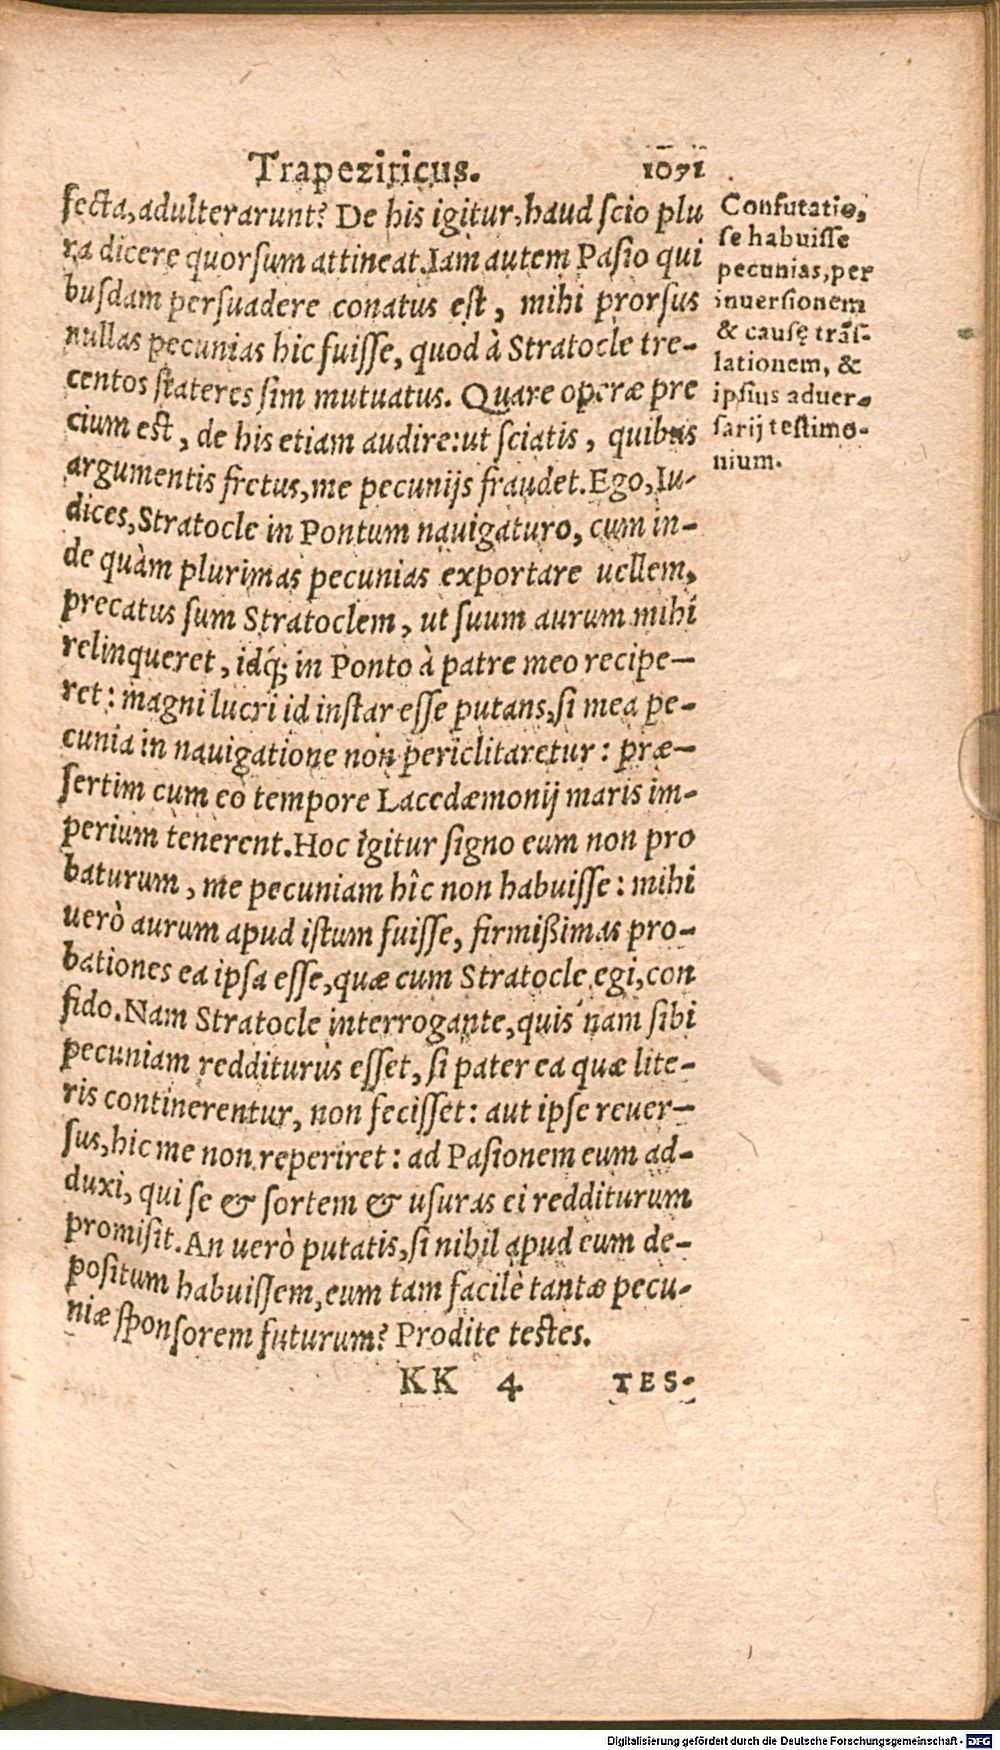 Trapeziticus. 1071
fecta, adulterarunt? De his igitur, haud scio plu
ra dicere quorsum attineat. Iam autem Pasio qui
busdam persuadere conatus est, mihi prorsus
nullas pecunias hic fuisse, quod à Stratocle tre-
centos stateres sim mutuatus. Quare operæ pre
cium est, de his etiam audire: ut sciatis, quibus
argumentis fretus, me pecunijs fraudet. Ego, Iu-
dices, Stratocle in Pontum nauigaturo, cum in-
de quàm plurimas pecunias exportare uellem,
precatus sum Stratoclem, ut suum aurum mihi
relinqueret, idq́; in Ponto à patre meo recipe-
ret: magni lucri id instar esse putans, si mea pe-
cunia in nauigatione non periclitaretur: præ-
sertim cum eo tempore Lacedæmonij maris im-
perium tenerent. Hoc igitur signo eum non pro
baturum, me pecuniam hîc non habuisse: mihi
uerò aurum apud istum fuisse, firmißimas pro-
bationes ea ipsa esse, quæ cum Stratocle egi, con
fido. Nam Stratocle interrogante, quis nam sibi
pecuniam redditurus esset, si pater ea quæ lite-
ris continerentur, non fecisset: aut ipse reuer-
sus, hic me non reperiret: ad Pasionem eum ad-
duxi, qui se & sortem & usuras ei redditurum
promisit. An uerò putatis, si nihil apud eum de-
positum habuissem, eum tam facilè tantæ pecu-
niæ sponsorem futurum? Prodite testes.
KK 4 TES-
Confutatio,
se habuisse
pecunias, per
inuersionem
& causę trãs-
lationem, &
ipsius aduer-
sarij testimo-
nium.
Digitalisierung gefördert durch die Deutsche Forschungsgemeinschaft - DFG